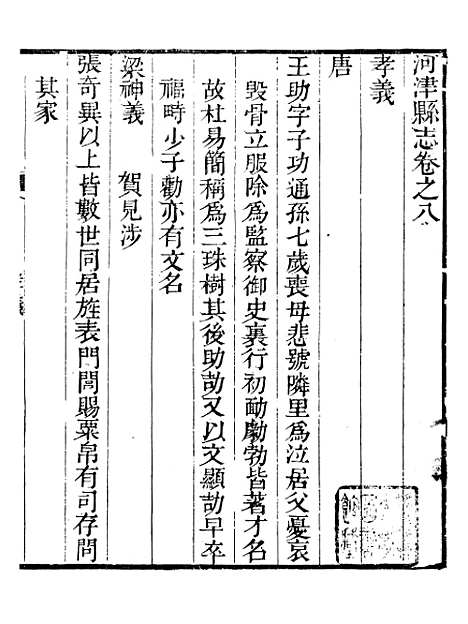 河津縣志卷之八
孝義
唐
王助字子功通孫七歲喪母悲號隣里爲泣居父憂哀
毀骨立服除爲監察御史裏行初勔勮勃皆著才名
故杜易簡稱爲三珠樹其後助劼又以文顯劼早卒
福畤少子勸亦有文名
梁神義　賀見涉
張奇異以上皆數世同居旌表門閭賜粟帛有司存問
其家